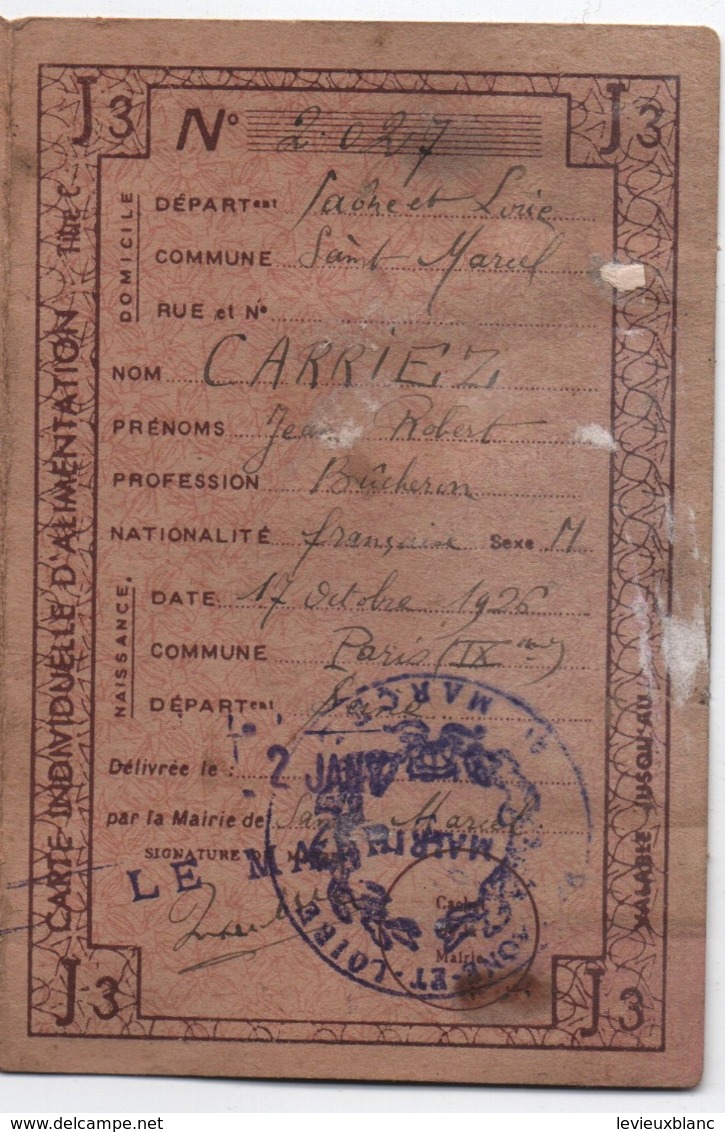 J3
J3
CARTE INDIVIDUELLE D'ALIMENTATION
N° 2.027
DOMICILE
DÉPARTent Saône et Loire
COMMUNE Saint Marcel
RUE et N°
NOM CARRIEZ
PRÉNOMS Jean Robert
PROFESSION Bûcheron
NATIONALITÉ française Sexe M
NAISSANCE
DATE 17 Octobre 1926
COMMUNE Paris (IX me)
DÉPARTent Seine
Délivrée le : 2 JAN
par la Mairie de Saint Marcel
SIGNATURE
LE MAIRE
MARC
MAIRIE
ONE-ET-LOIRE
Mairie
VALABLE JUSQU'AU
J3
J3
Website: levieuxblanc